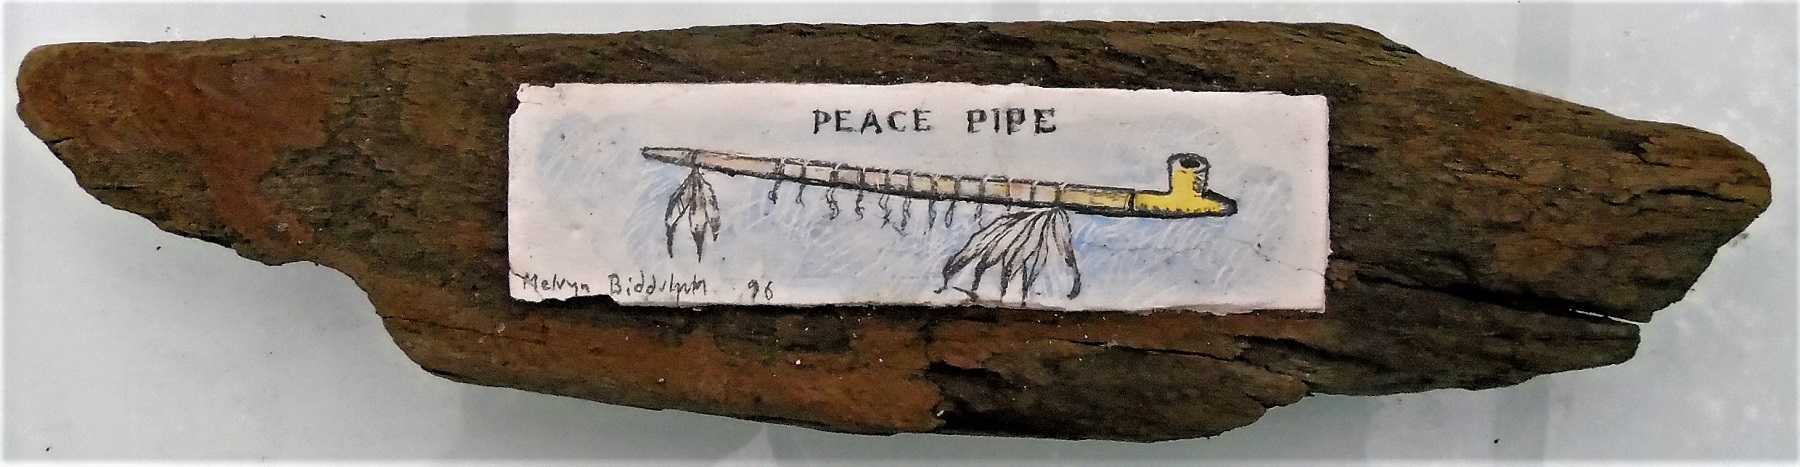 PEACE PIPE
Melvyn Biddulph 96